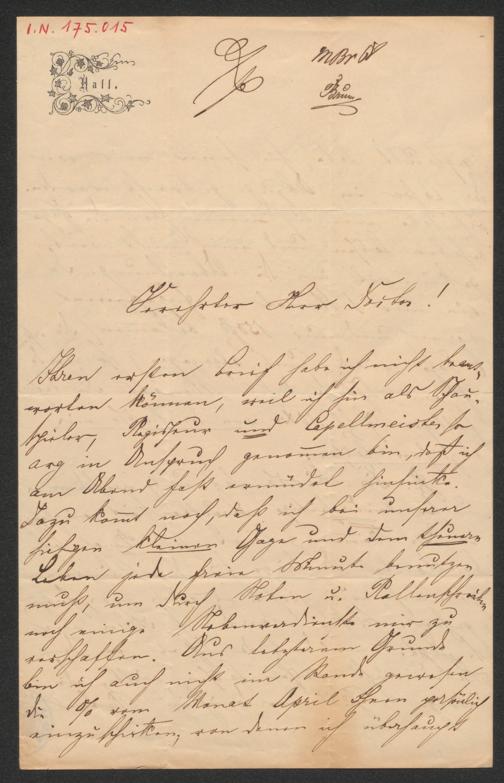 I.N. 175.015
Hall.
Brünn
Verehrter Herr Doctor!
Ihren ersten Brief habe ich nicht beant-
worten können, weil ich hier als Schau-
spieler, Regisseur und Capellmeister so
arg in Anspruch genommen bin, daß ich
am Abend fast ermüdet hinsinke.
Dazu kommt noch, daß ich bei unserer
hiesigen kleinen Gage und dem theuern
Leben jede freie Minute benutzen
muß, um durch Noten u. Rollenschreiben
noch einige Nebenverdienste mir zu
verschaffen. Aus letzterem Grunde
bin ich auch nicht im Stande gewesen
die % vom Monat April Ihnen persönlich
einzuschicken, von denen ich überhaupt